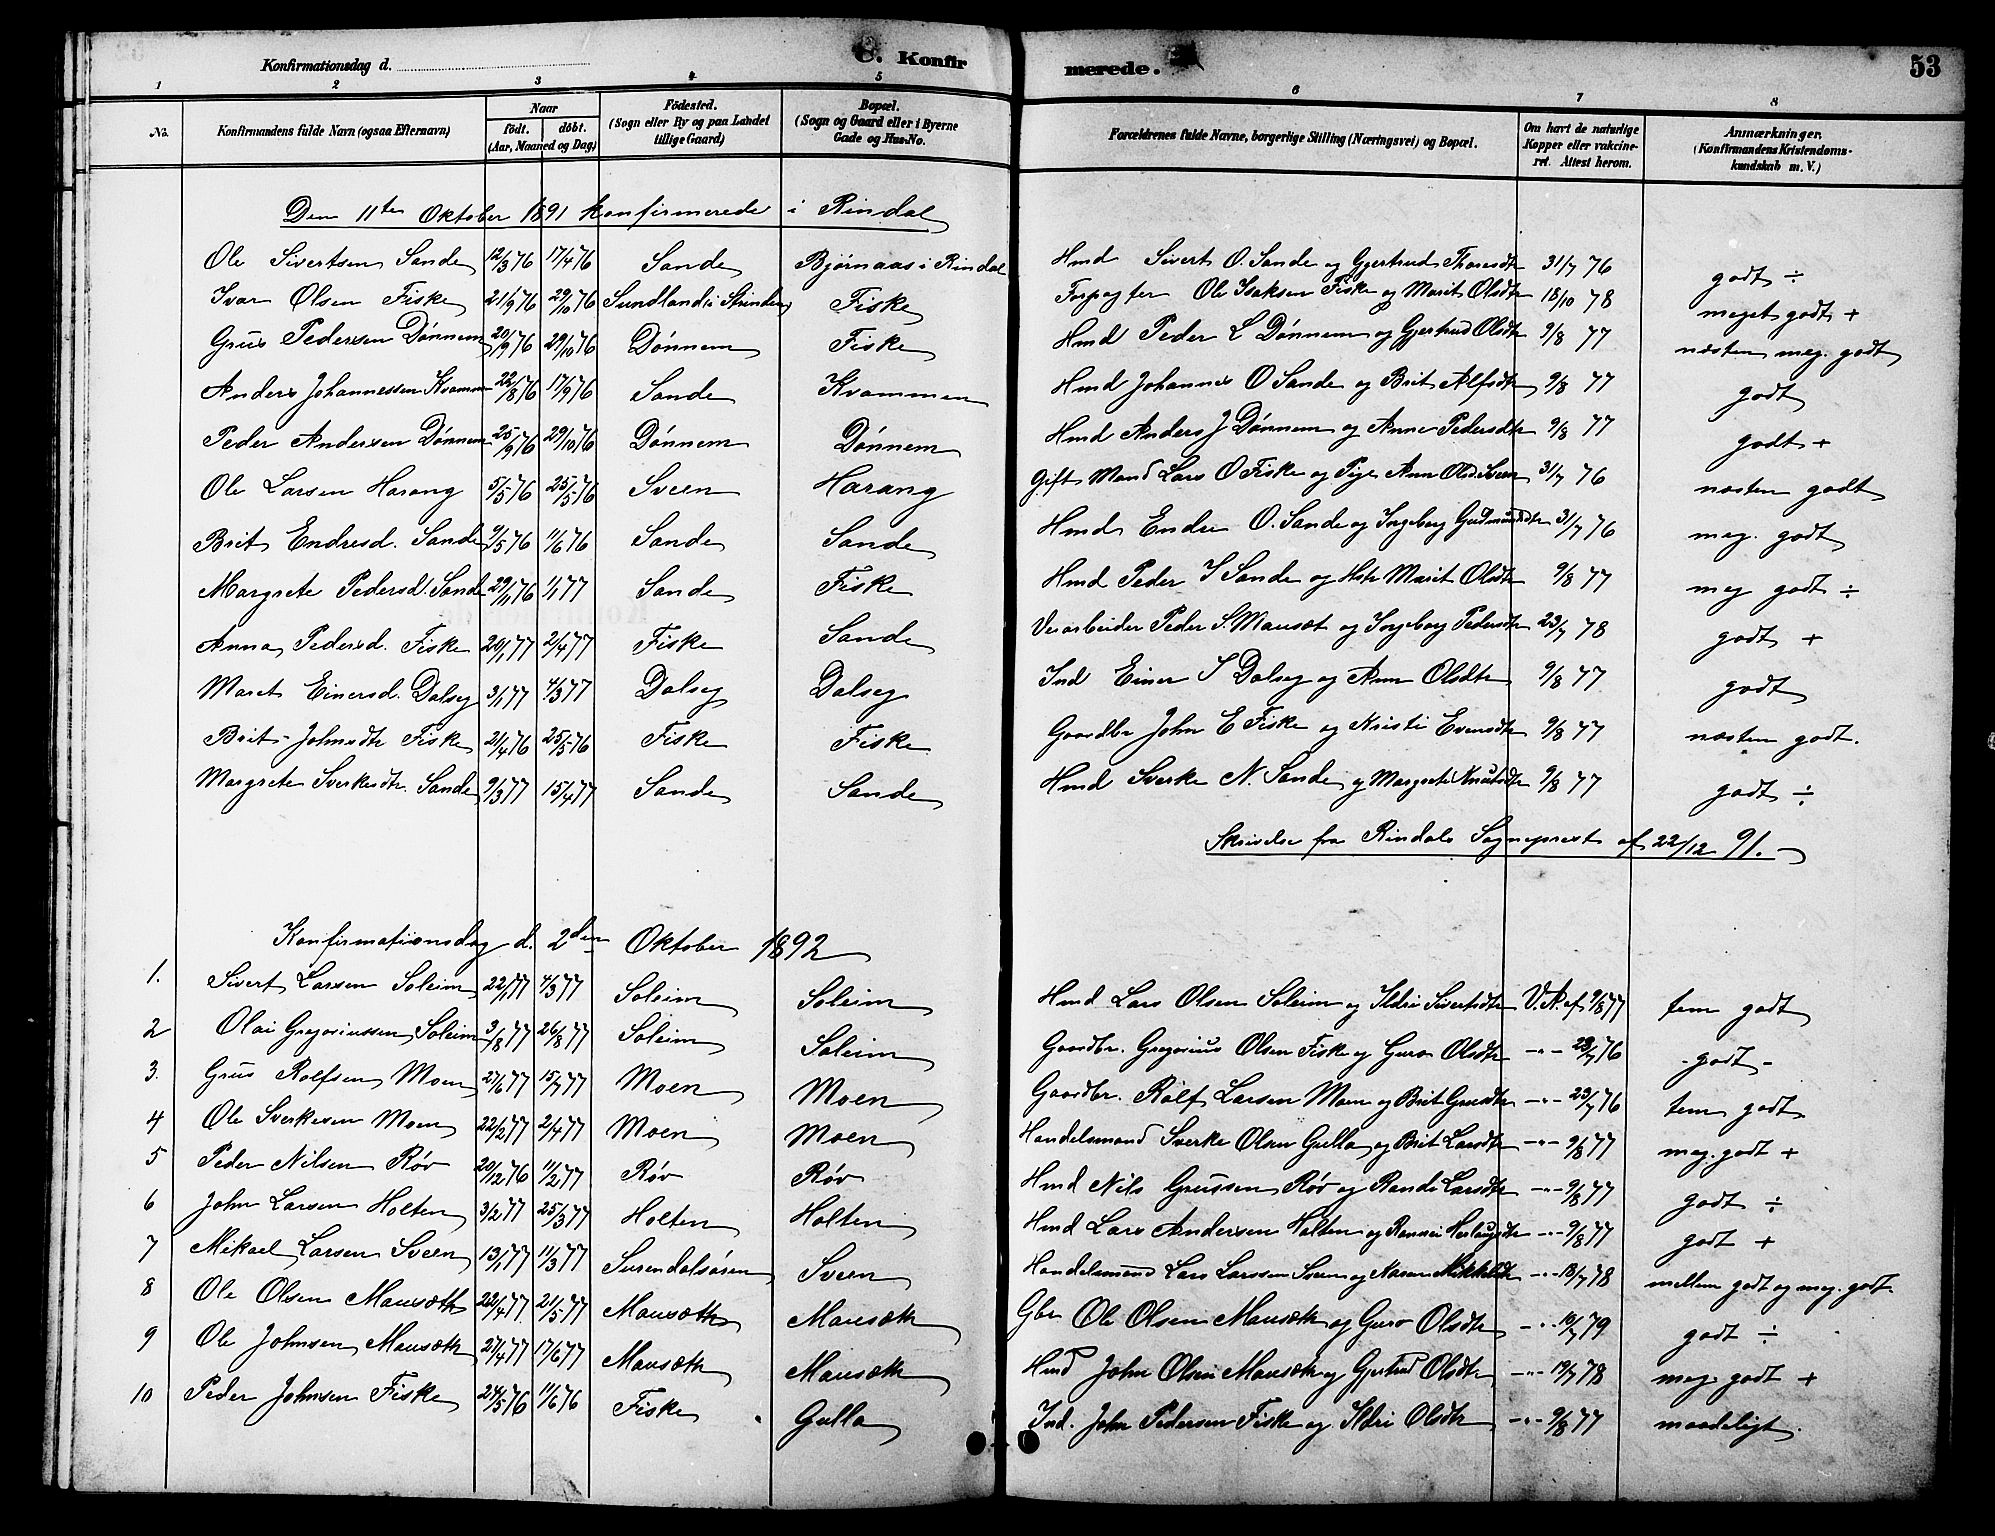 Konfirmationsdag d. C. Konfirmerede. 53
1 2 3 4 5 6 7 8
No. Konfirmandens fulde Navn (ogsaa Efternavn) Naar födt. döbt. (Aar, Maaned og Dag) Födested. (Sogn eller By og paa Landet tillige Gaard) Bopæl. (Sogn og Gaard eller i Byerne Gade og Hus-No. Forældrenes fulde Navne, borgerlige Stilling (Næringsvei) og Bopæl. Om havt de naturlige Kopper eller vakcineret. Attest herom. Anmærkninger. (Konfirmandens Kristendomskundskab m. V.)
Den 11te Oktober 1891 konfirmerede i Rindal
Ole Sivertsen Sande 12/3 76 17/4 76 Sande Bjørnaas i Rindal Hmd Sivert O. Sande og Gjertrud Thoresdtr 31/7 76 godt ÷
Ivar Olsen Fiske 21/9 76 29/10 76 Sundland i Strinden Fiske Forpagter Ole Isaksen Fiske og Marit Olsdtr 18/10 78 meget godt +
Grus Pedersen Dønnem 20/9 76 29/10 76 Dønnem Fiske Hmd Peder L Dønnem og Gjertrud Olsdtr 9/8 77 næsten meg. godt
Anders Johannessen Kvammen 22/8 76 17/9 76 Sande Kvammen Hmd Johannes O Sande og Brit Alfsdtr 9/8 77 godt
Peder Andersen Dønnem 25/9 76 29/10 76 Dønnem Dønnem Hmd Anders J Dønnem og Anne Pedersdtr 9/8 77 godt +
Ole Larsen Harang 5/5 76 25/5 76 Sveen Harang Gift Mand Lars O Fiske og Pige Ann Olsd. Sveen 31/7 76 næsten godt
Brit Endresd. Sande 9/5 76 11/6 76 Sande Sande Hmd Endre O. Sande og Ingeborg Gudmundsdtr 31/7 76 meg. godt
Margrete Pedersd. Sande 29/11 76 1/1 77 Sande Fiske Hmd Peder I Sande og Hstr Marit Olsdtr 9/8 77 meg godt ÷
Anna Pedersd. Fiske 20/1 77 2/4 77 Fiske Sande Veiarbeider Peder S. Mausæt og Ingeborg Pedersdtr 23/7 78 godt +
Maret Einersd. Dalseg 3/1 77 4/3 77 Dalseg Dalseg Ind Einer I Dalseg og Ann Olsdtr 9/8 77 godt
Brit Johnsdtr Fiske 21/4 76 25/5 76 Fiske Fiske Gaardbr John E Fiske og Kristi Evensdtr 9/8 77 næsten godt.
Margrete Sverkesdtr. Sande 9/3 77 15/4 77 Sande Sande Hmd Sverke N. Sande og Margrete Knutsdtr 9/8 77 godt ÷
Skrivelse fra Rindals Sogneprest af 22/12 91.
Konfirmationsdag d. 2den Oktober 1892
1. Sivert Larsen Soleim 22/1 77 4/3 77 Soleim Soleim Hmd Lars Olsen Soleim og Ildri Sivertsdtr V. A. af 9/8 77 tem godt
2 Olai Gregoriussen Soleim 3/8 77 26/8 77 Soleim Soleim Gaardbr. Gregorius Olsen Fiske og Guro Olsdtr -"- 23/7 76 - godt -
3. Grus Rolfsen Moen 27/6 77 15/7 77 Moen Moen Gaardbr. Rolf Larsen Moen og Brit Grusdtr -"- 23/7 76 tem godt
4 Ole Sverkesen Moen 22/2 77 2/4 77 Moen Moen Handelsmand Sverke Olsen Gulla og Brit Larsdtr -"- 9/8 77 meg. godt +
5 Peder Nilsen Røv 20/12 76 11/2 77 Røv Røv Hmd Nils Grussen Røv og Randi Larsdtr -"- 9/8 77 godt ÷
6 John Larsen Holten 3/2 77 25/3 77 Holten Holten Hmd Lars Andersen Holten og Rannei Herlaugsdtr -"- 9/8 77 godt +
7 Mikael Larsen Sveen 13/1 77 11/3 77 Surendalsøren Sveen Handelsmand Lars Larssen Sveen og Maren Mikkelsdtr -"- 18/7 78 mellem godt og meg. godt.
8 Ole Olsen Mausæth 22/4 77 21/5 77 Mausæth Mausæth Gbr Ole Olsen Mausæth og Guro Olsdtr -"- 10/7 79 godt ÷
9 Ole Johnsen Mausæth 27/4 77 17/6 77 Mausæth Mausæth Hmd John Olsen Mausæth og Gjertrud Olsdtr -"- 19/7 78 meg. godt +
10 Peder Johnsen Fiske 24/5 76 11/6 76 Fiske Gulla Ind. John Pedersen Fiske og Ildri Olsdtr -"- 9/8 77 maadeligt.